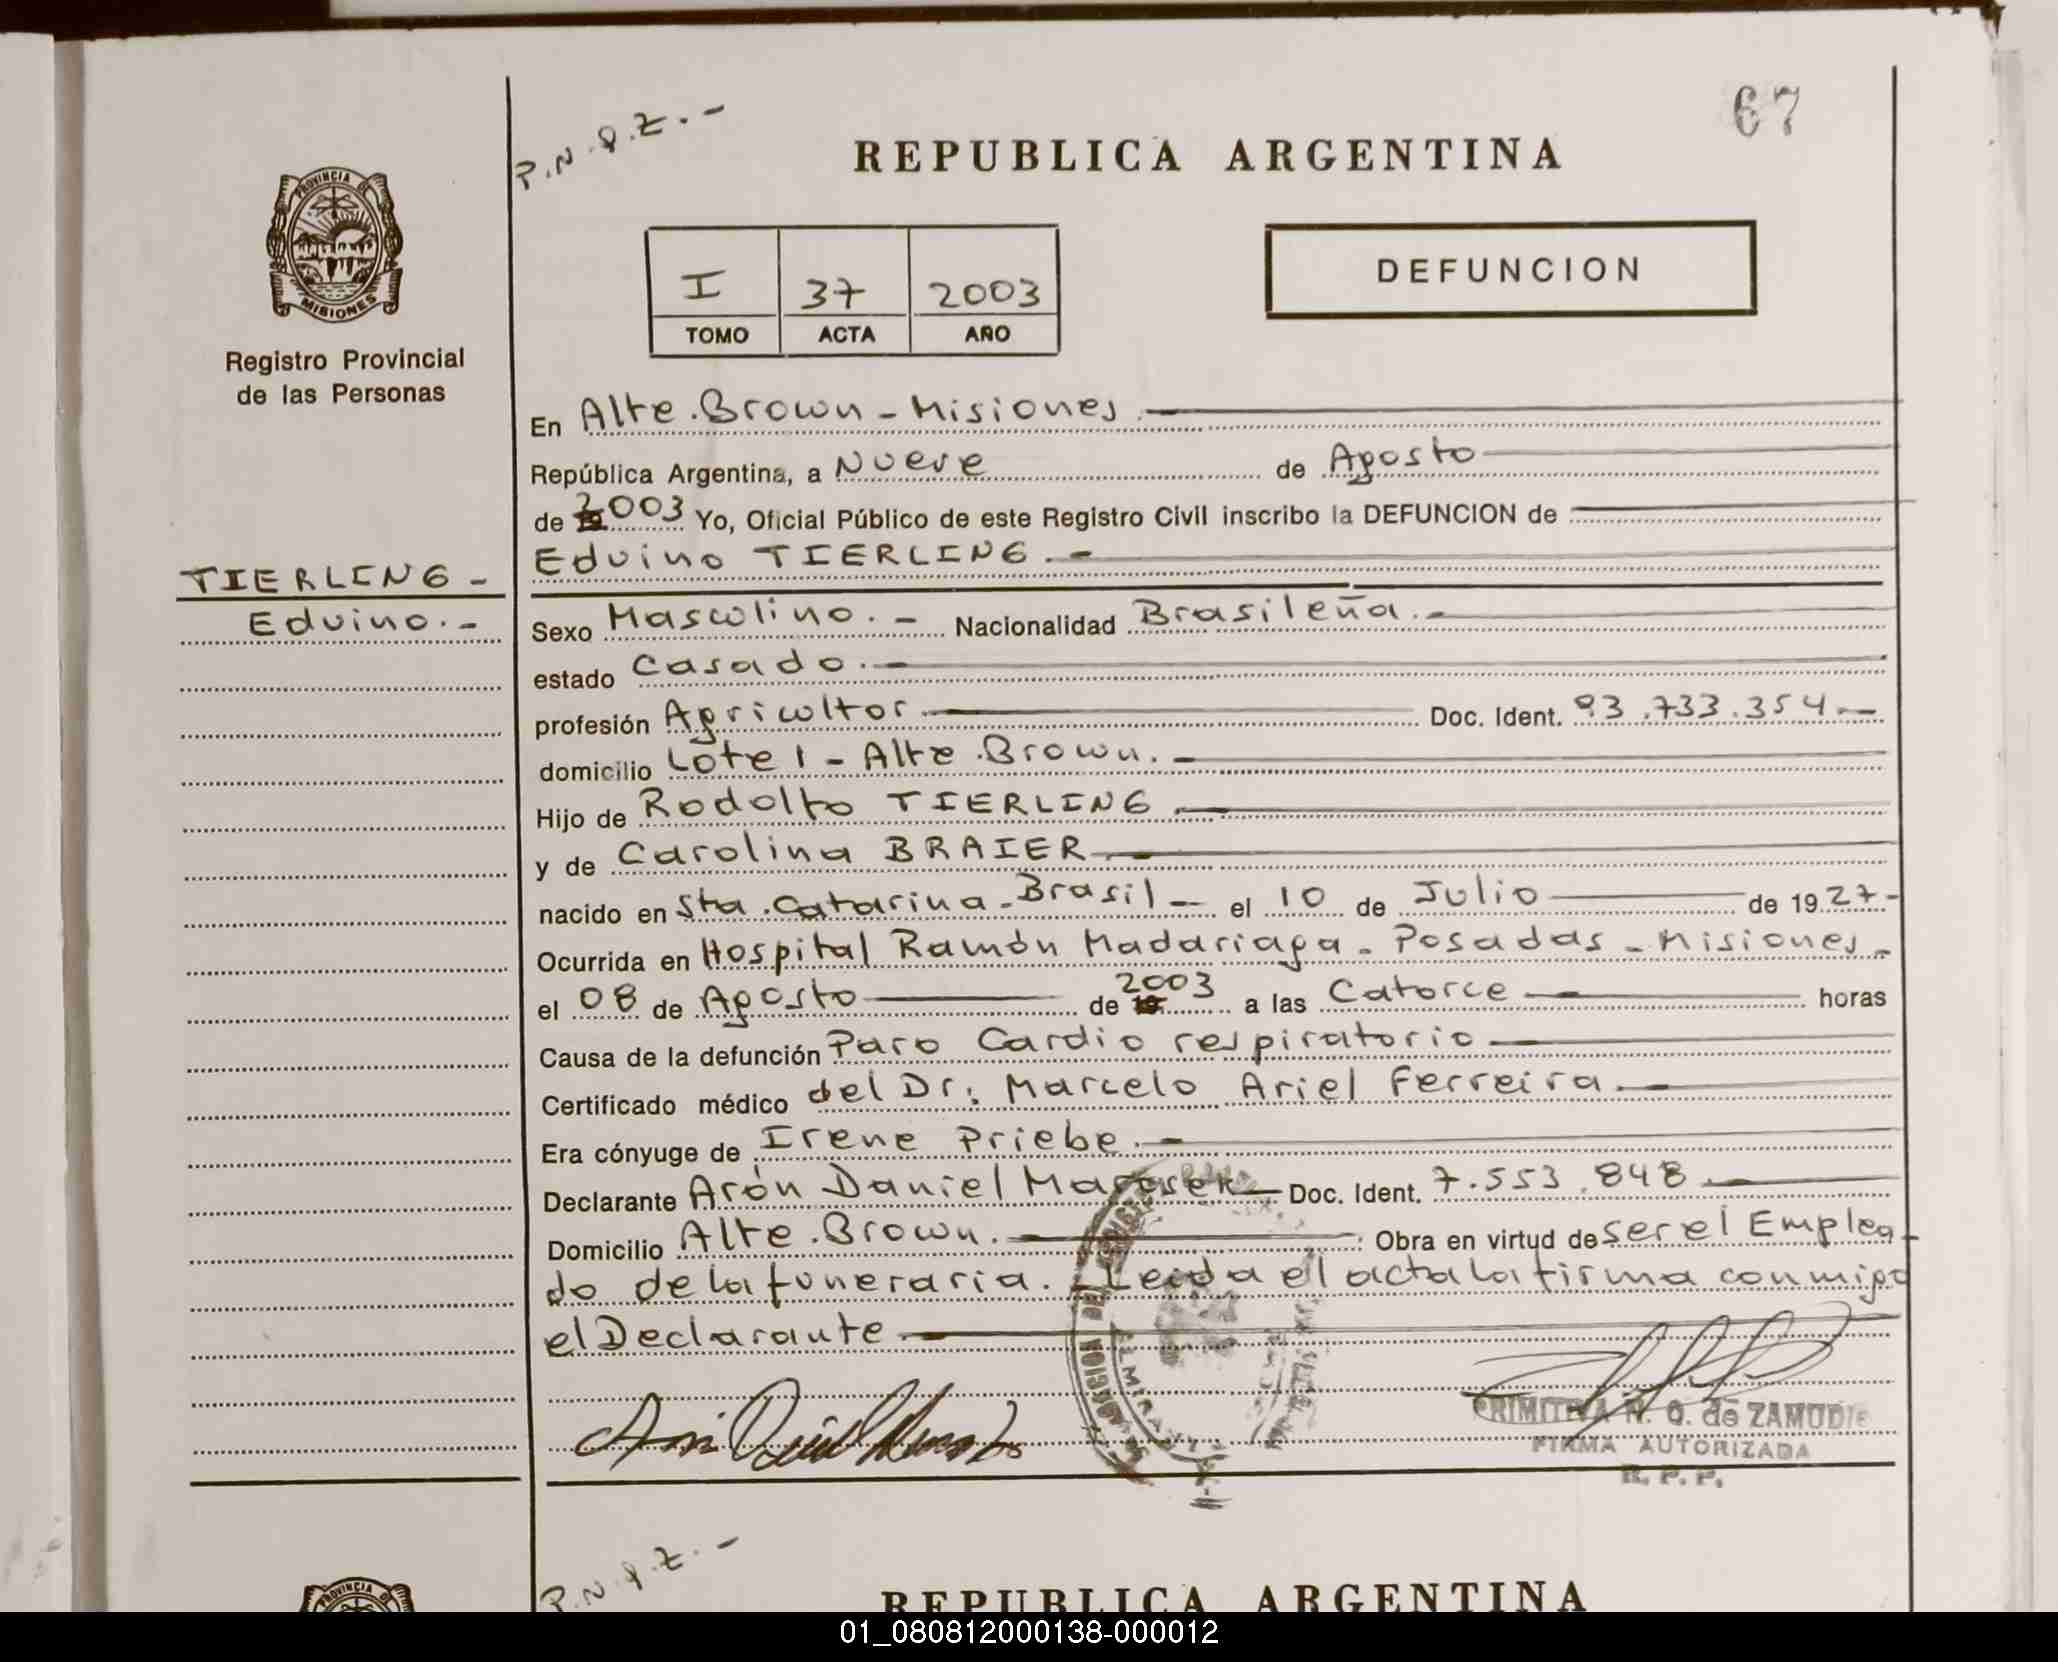 67
P.N.Q.Z.-
REPUBLICA ARGENTINA
PROVINCIA DE
MISIONES
Registro Provincial
de las Personas
I 37 2003
TOMO ACTA AÑO
DEFUNCION
En Alte. Brown - Misiones
República Argentina, a Nueve de Agosto
de 2003 Yo, Oficial Público de este Registro Civil inscribo la DEFUNCION de
Eduino TIERLING.-
TIERLING -
Eduino.-
Sexo Masculino.- Nacionalidad Brasileña.-
estado Casado.-
profesión Agricultor Doc. Ident. 93.733.354.-
domicilio Lote 1 - Alte. Brown.-
Hijo de Rodolfo TIERLING
y de Carolina BRAIER
nacido en Sta. Catarina - Brasil - el 10 de Julio de 1927-
Ocurrida en Hospital Ramón Madariaga - Posadas - Misiones -
el 08 de Agosto de 2003 a las Catorce horas
Causa de la defunción Paro Cardio respiratorio
Certificado médico del Dr: Marcelo Ariel Ferreira.-
Era cónyuge de Irene Priebe.-
Declarante Arón Daniel Doc. Ident. 7.553.848
Domicilio Alte. Brown. Obra en virtud de ser el Emplea
do de la funeraria. Leida el acta la firma conmigo
el Declarante
PRIMITIVA N. Q. de ZAMUDIO
FIRMA AUTORIZADA
R. P. P.
P.N.Q.Z.-
PROVINCIA DE
REPUBLICA ARGENTINA
01_080812000138-000012